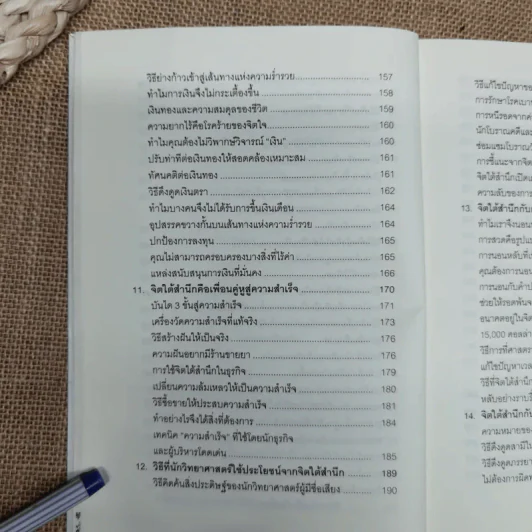 วิธีย่างก้าวเข้าสู่เส้นทางแห่งความร่ำรวย.......................... 157
ทำไมการเงินจึงไม่กระเตื้องขึ้น .......................... 158
เงินทองและความสมดุลของชีวิต .......................... 159
ความยากไร้คือโรคร้ายของจิตใจ.......................... 160
ทำไมคุณต้องไม่วิพากษ์วิจารณ์ "เงิน" .......................... 160
ปรับท่าทีต่อเงินทองให้สอดคล้องเหมาะสม .......................... 161
ทัศนคติต่อเงินทอง .......................... 161
วิธีดึงดูดเงินตรา .......................... 162
ทำไมบางคนจึงไม่ได้รับการขึ้นเงินเดือน .......................... 164
อุปสรรคขวางกั้นบนเส้นทางแห่งความร่ำรวย .......................... 164
ปกป้องการลงทุน .......................... 165
คุณไม่สามารถครอบครองบางสิ่งที่ไร้ค่า .......................... 165
แหล่งสนับสนุนการเงินที่มั่นคง .......................... 166
11. จิตใต้สำนึกคือเพื่อนคู่หูสู่ความสำเร็จ .......................... 170
บันได 3 ขั้นสู่ความสำเร็จ .......................... 171
เครื่องวัดความสำเร็จที่แท้จริง .......................... 173
วิธีสร้างฝันให้เป็นจริง .......................... 176
ความฝันอยากมีร้านขายยา .......................... 176
การใช้จิตใต้สำนึกในธุรกิจ .......................... 179
เปลี่ยนความล้มเหลวให้เป็นความสำเร็จ .......................... 180
วิธีซื้อขายให้ประสบความสำเร็จ .......................... 181
ทำอย่างไรจึงได้สิ่งที่ต้องการ .......................... 184
เทคนิค "ความสำเร็จ" ที่ใช้โดยนักธุรกิจ
และผู้บริหารโดดเด่น .......................... 185
12. วิธีที่นักวิทยาศาสตร์ใช้ประโยชน์จากจิตใต้สำนึก .......................... 189
วิธีคิดค้นสิ่งประดิษฐ์ของนักวิทยาศาสตร์ผู้มีชื่อเสียง .......................... 190
วิธีแก้ไขปัญหาของ
การรักษาโรคเบา
การหนีรอดจากค่
นักโบราณคดีและ
ซ่อมแซมโบราณวั
การชี้แนะจากจิต
จิตใต้สำนึกเปิดเ
ความลับของการ
13. จิตใต้สำนึกกับ
ทำไมเราจึงนอน
การสวดคือรูปแบ
การนอนหลับที่เ
คุณต้องการนอน
การนอนกับคำป
ช่วยให้รอดพ้นจ
อนาคตอยู่ในจิต
15,000 ดอลล่า
วิธีการที่ศาสตร
แก้ไขปัญหาเวล
วิธีที่จิตใต้สำนึก
หลับอย่างราบรื่
14. จิตใต้สำนึกกับ
ความหมายของ
วิธีดึงดูดสามีใน
วิธีดึงดูดภรรยา
ไม่ต้องการผิดพ